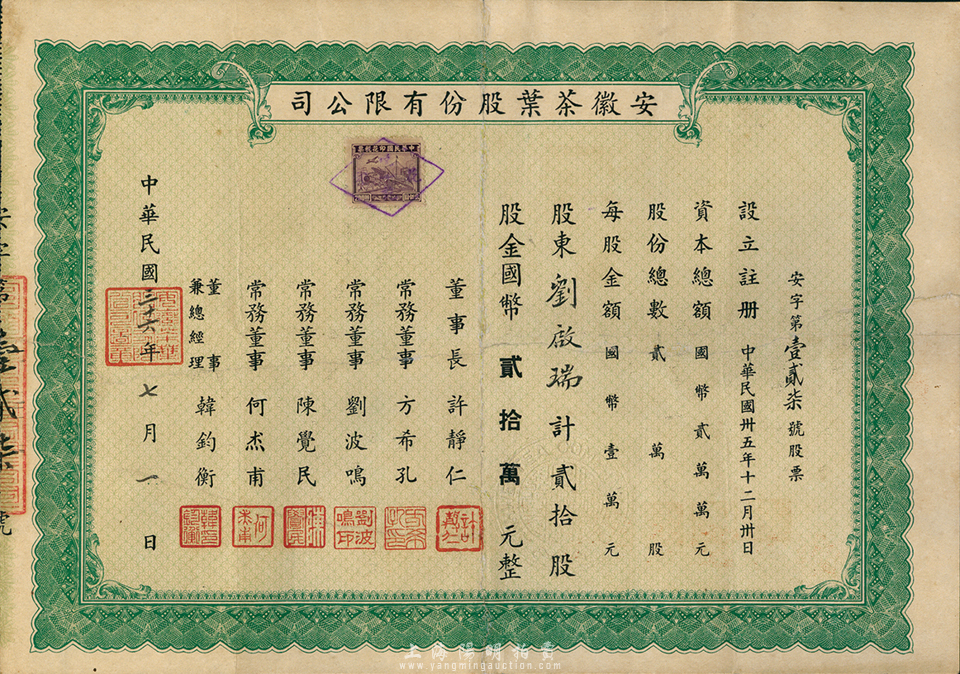 安徽茶葉股份有限公司
中華民國印花稅票
安字第壹貳柒號股票
設立註册 中華民國卅五年十二月卅日
資本總額國幣貳萬萬元
股份總數貳萬股
每股金額國幣壹萬元
股東劉啟瑞計貳拾股
股金國幣貳拾萬元整
董事長 許靜仁
常務董事 方希孔
常務董事 劉波鳴
常務董事 陳覺民
常務董事 何杰甫
董事兼總經理 韓鈞衡
劉波鳴印
中華民國三十六年七月一日
安字第壹貳柒號
上海陽明拍賣
www.yangmingauction.com